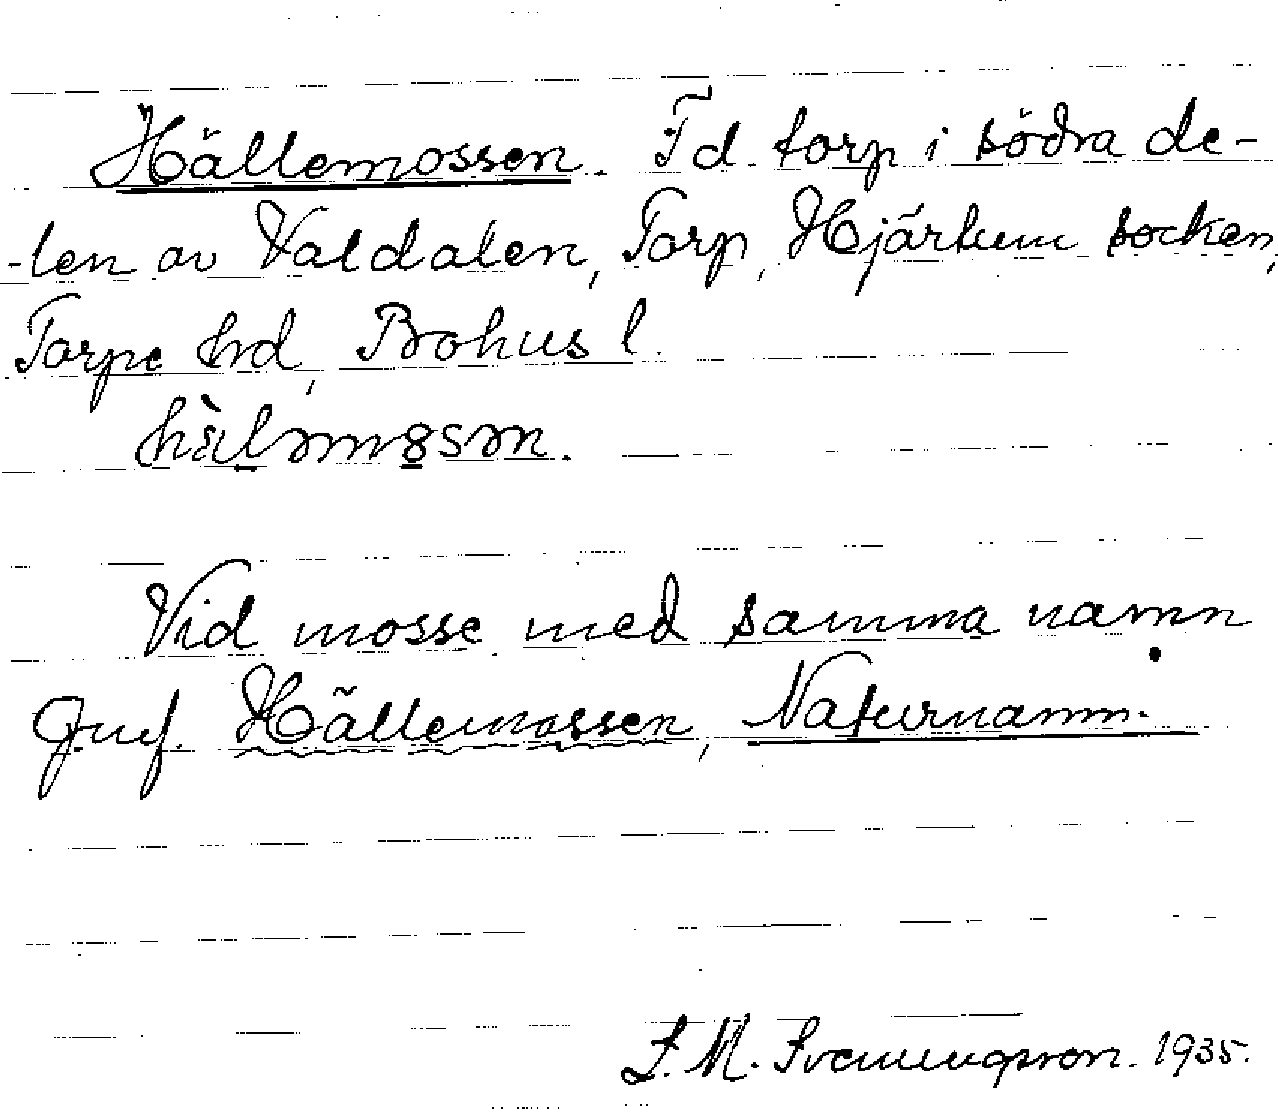 Hällemossen. F.d. torp i södra de-
-len av Valdalen, Torp, Hjärtum socken,
Torpe hrd, Bohus l.
Vid mosse med samma namn
Jmf. Hällemossen, Naturnamn.
S. M. Svenungsson. 1935.